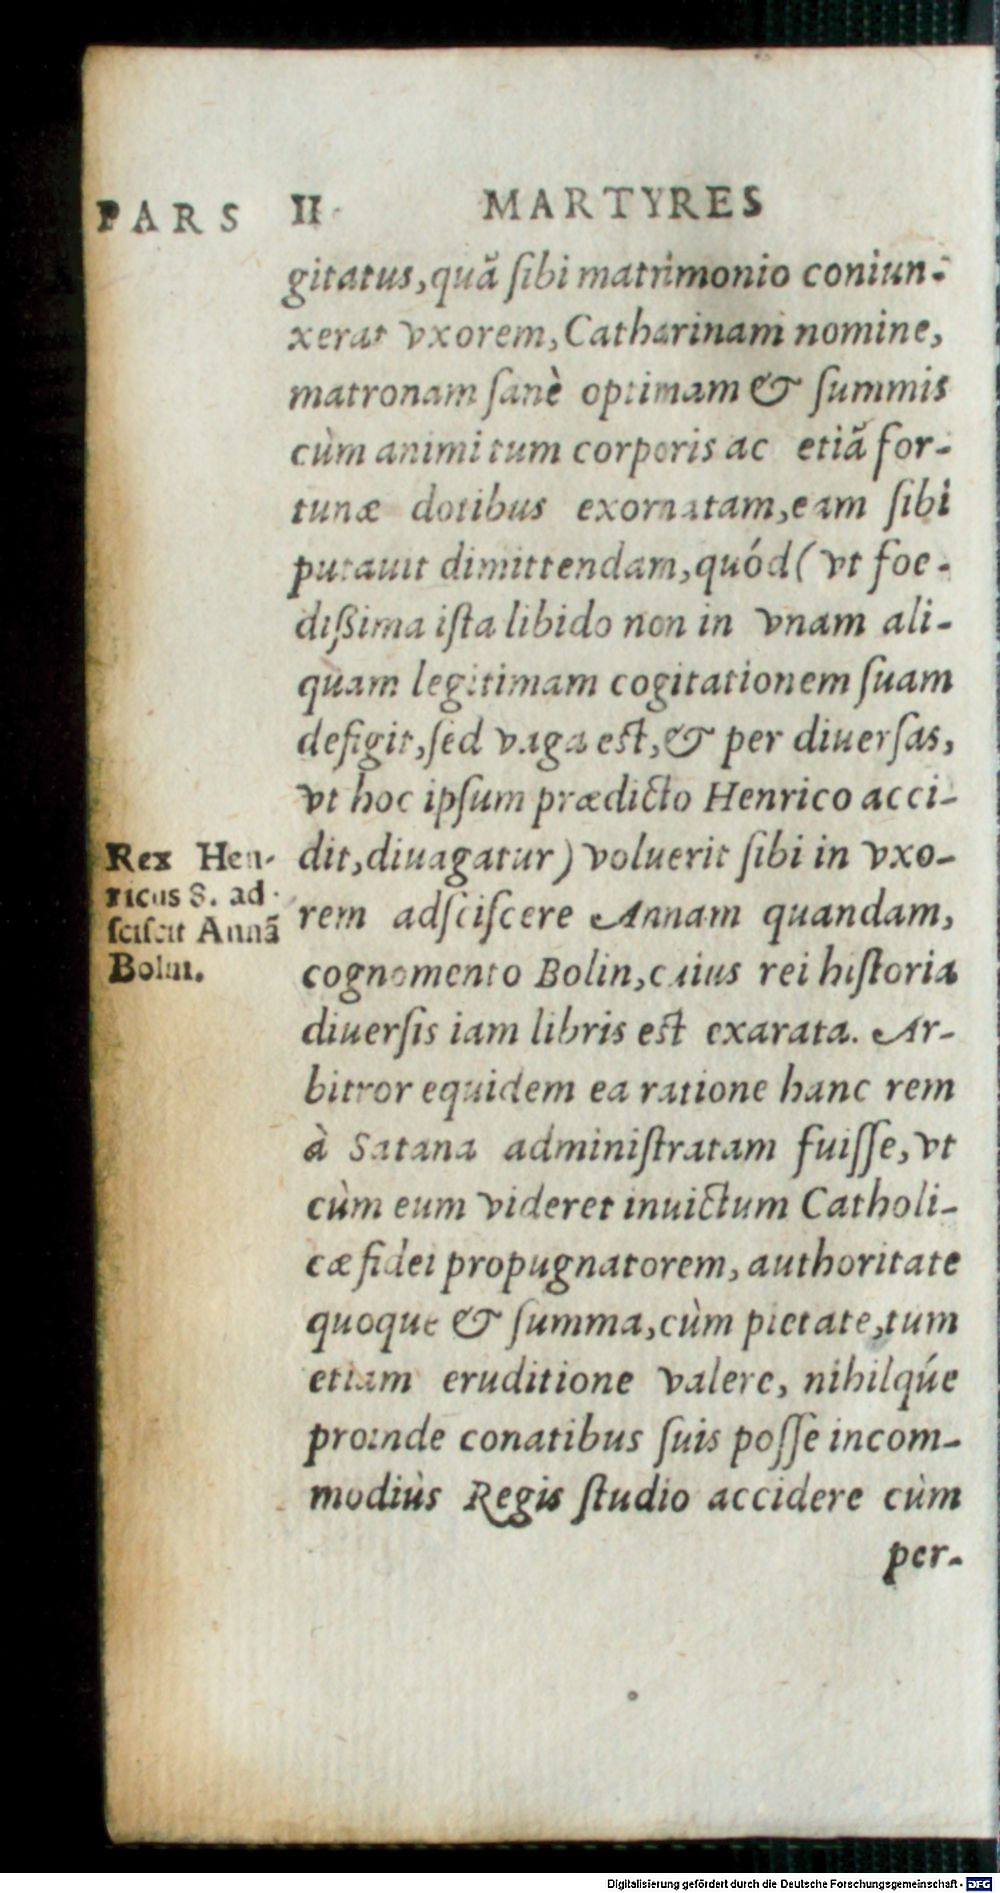 PARS II. MARTYRES
gitatus, quā ſibi matrimonio coniun-
xerat vxorem, Catharinam nomine,
matronam ſanè optimam & ſummis
cùm animi tum corporis ac etiā for-
tunæ dotibus exornatam, eam ſibi
putauit dimittendam, quód (vt foe-
diſſima iſta libido non in vnam ali-
quam legitimam cogitationem ſuam
defigit, ſed vaga eſt, & per diuerſas,
vt hoc ipſum prædicto Henrico acci-
dit, diuagatur) voluerit ſibi in vxo-
rem adſciſcere Annam quandam,
cognomento Bolin, cuius rei hiſtoria
diuerſis iam libris eſt exarata. Ar-
bitror equidem ea ratione hanc rem
à Satana adminiſtratam fuiſſe, vt
cùm eum videret inuictum Catholi-
cæ fidei propugnatorem, authoritate
quoque & ſumma, cùm pietate, tum
etiam eruditione valere, nihilqúe
proinde conatibus ſuis poſſe incom-
modiùs Regis ſtudio accidere cùm
per-
Rex Hen-
ricus 8. ad-
ſciſcit Annā
Bolin.
Digitalisierung gefördert durch die Deutsche Forschungsgemeinschaft - DFG